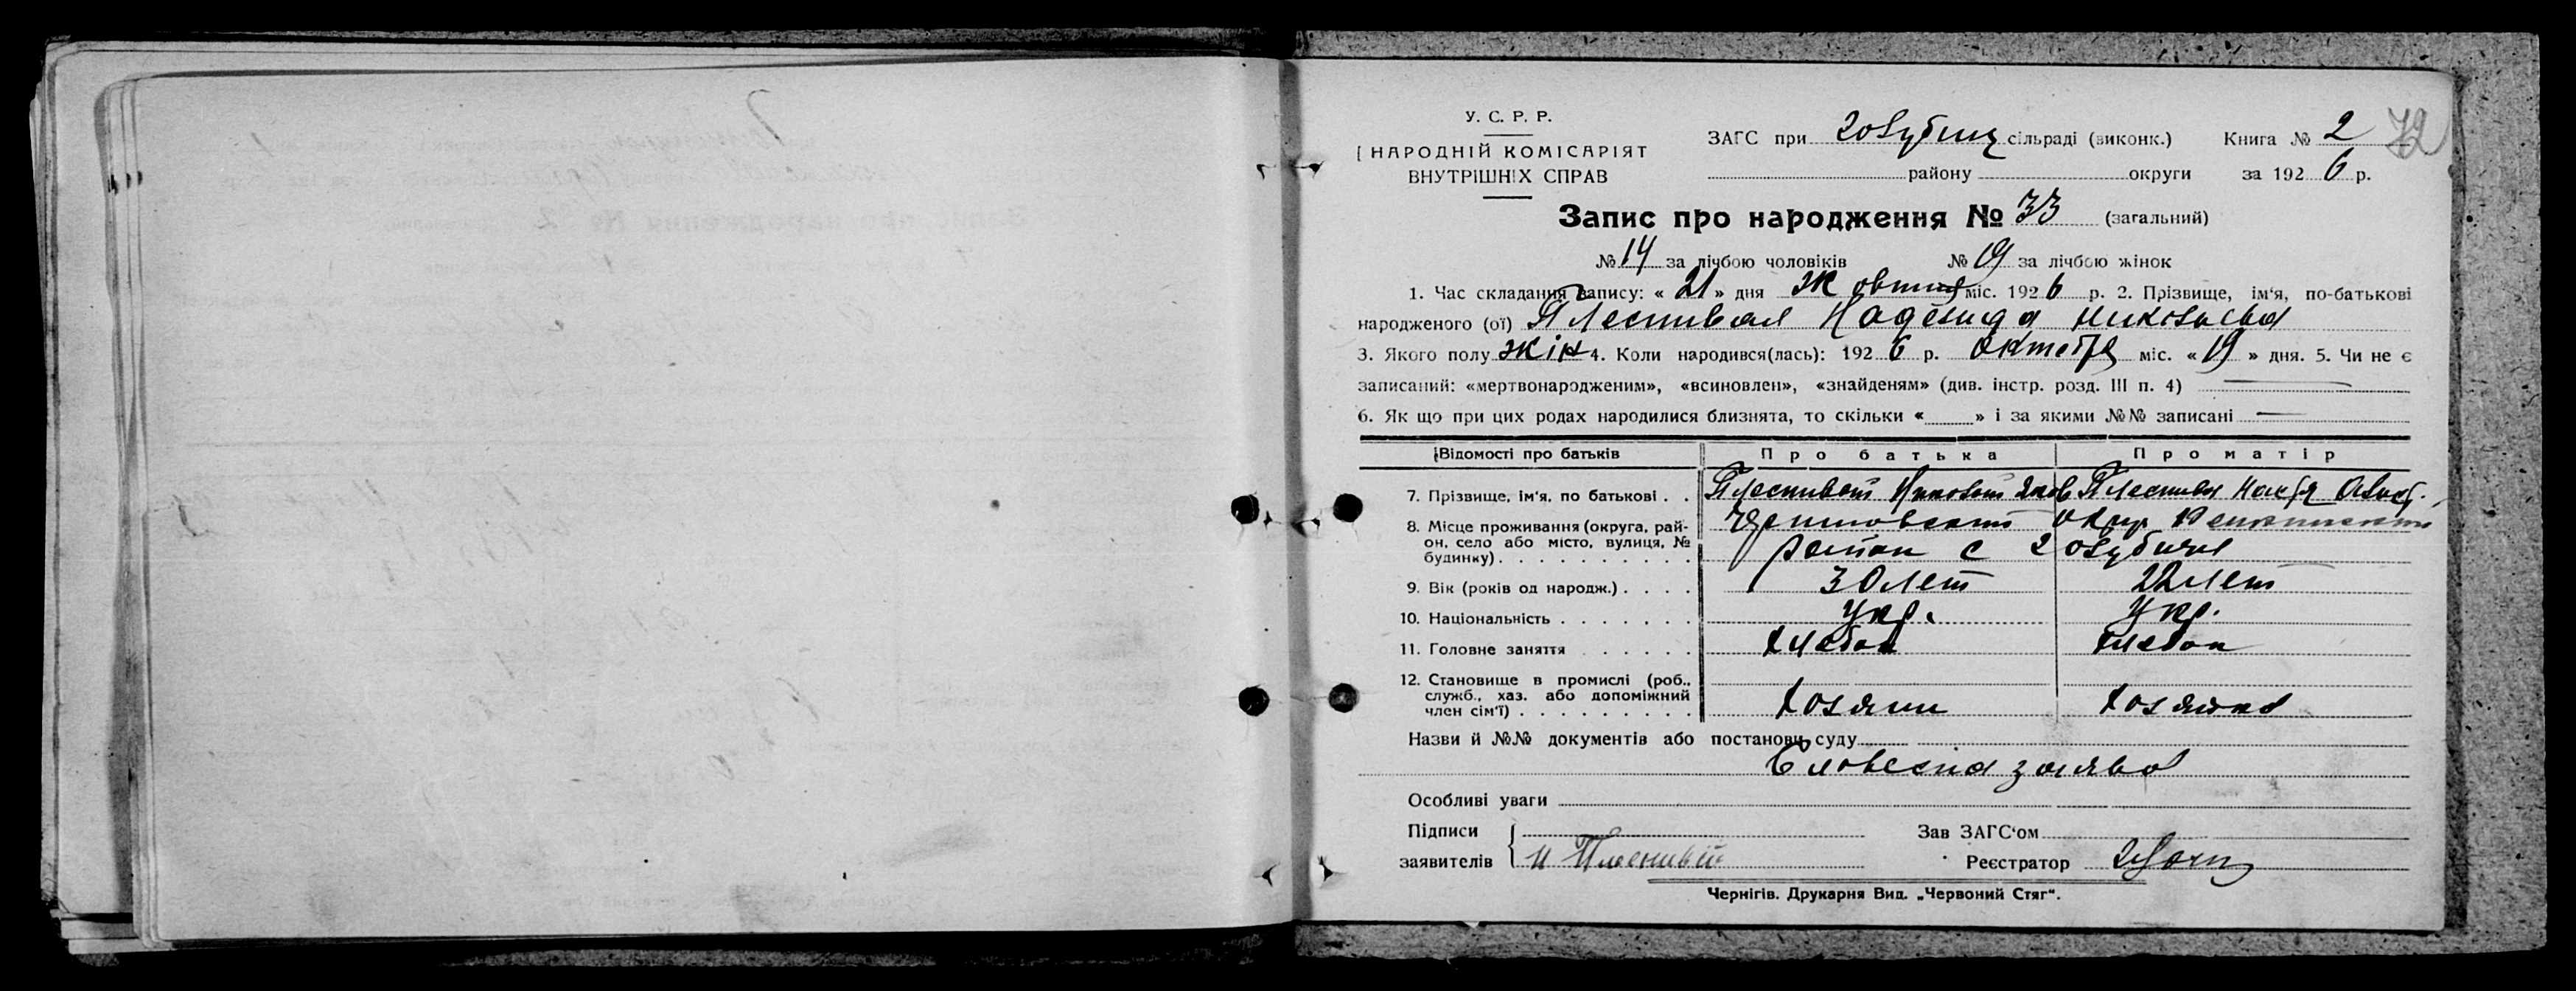 У. С. Р. Р.
НАРОДНІЙ КОМІСАРІЯТ
ВНУТРІШНІХ СПРАВ
ЗАГС при Голубиц сільраді (виконк.) Книга № 2 72
району округи за 192 6 р.
Запис про народження № 33 (загальний)
№ 14 за лічбою чоловіків № 19 за лічбою жінок
1. Час складання запису: « 21 » дня жовтня міс. 192 6 р. 2. Прізвище, ім'я, по-батькові
народженого (ої) Плеснивая Надежда Николаевна
3. Якого полу жін 4. Коли народився(лась): 192 6 р. Октября міс. « 19 » дня. 5. Чи не є
записаний: «мертвонародженим», «всиновлен», «знайденям» (див. інстр. розд. III п. 4)
6. Як що при цих родах народилися близнята, то скільки « » і за якими №№ записані
Відомості про батьків Про батька Про матір
7. Прізвище, ім'я, по батькові . . Плеснивый Николай Яков Плеснивая Настя
8. Місце проживання (округа, рай- Черниговский округ
он, село або місто, вулиця, № район с Голубичи
будинку)
9. Вік (років од народж.) 30 лет 22 лет
10. Національність Укр. Укр.
11. Головне заняття хлебоп хлебоп
12. Становище в промислі (роб.,
служб., хаз. або допоміжний
член сім'ї) хозяин хозяйка
Назви й №№ документів або постанови суду
Словесна заява
Особливі уваги
Підписи Зав ЗАГС'ом
заявителів Н Плеснивый Реєстратор
Чернігів. Друкарня Вид. „Червоний Стяг".